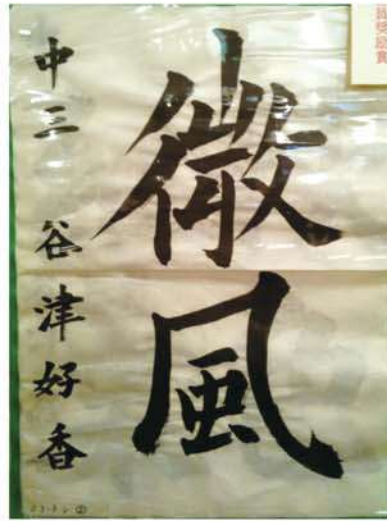 微風
中三 谷津好香